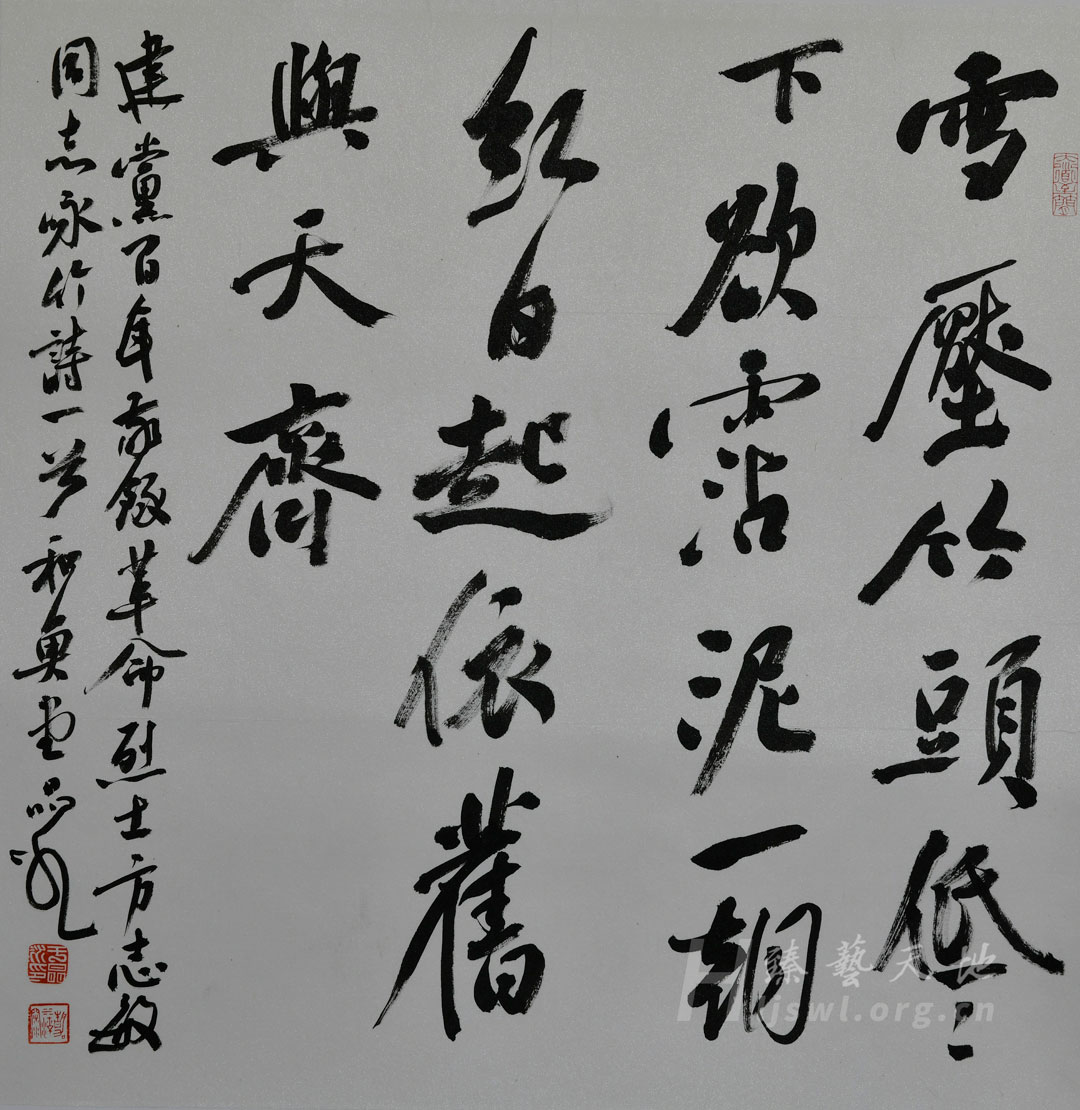 雪壓竹頭低〻
下欲霑泥一朝
紅日起依舊
與天齊
建黨百年敬錄革命烈士方志敏
同志咏竹詩一首
臻藝天地
jswl.org.cn